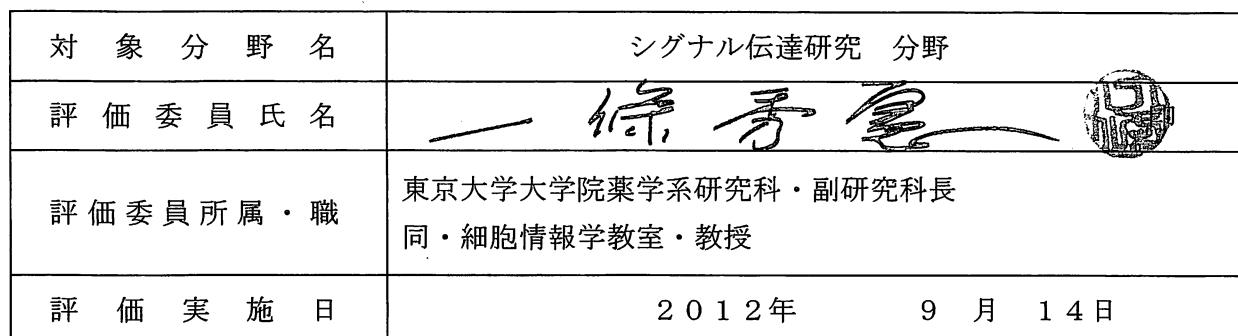 対象分野名 シグナル伝達研究 分野
評価委員氏名 一條秀憲
評価委員所属・職 東京大学大学院薬学系研究科・副研究科長
同・細胞情報学教室・教授
評価実施日 2012年 9月 14日